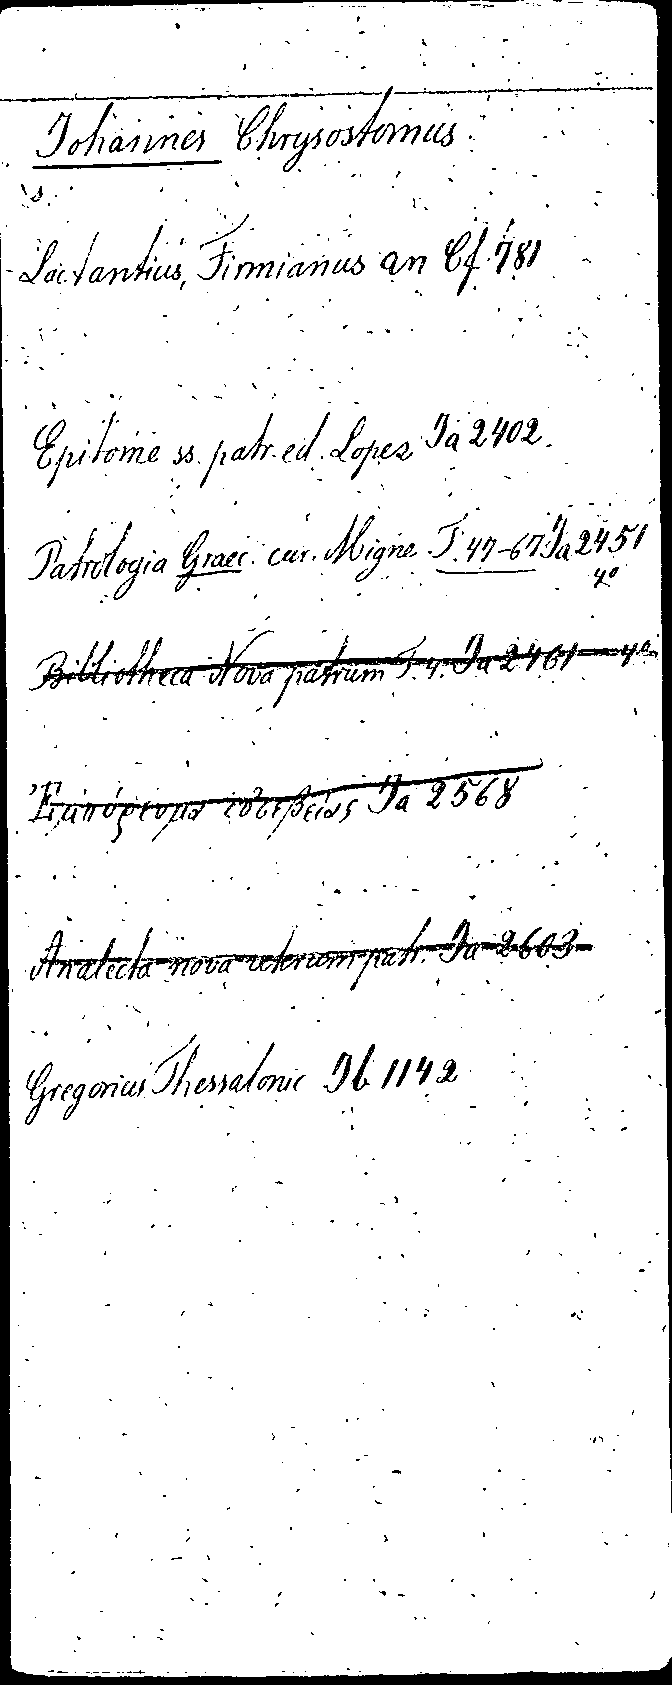 Johannes Chrysostomus
s.
Lactantius, Firmianus an Cf 781
Epitome ss. patr. ed. Lopez Ia 2402.
Patrologia Graec. cur. Migne T. 47-67. Ia 2451
4°
Bibliotheca Nova patrum T. 4. Ia 2461 4°.
Ἐμπόρευμα εὐσεβείας Ia 2568
Analecta nova veterum patr. Ia 2603
Gregorius Thessalonic Ib 1142